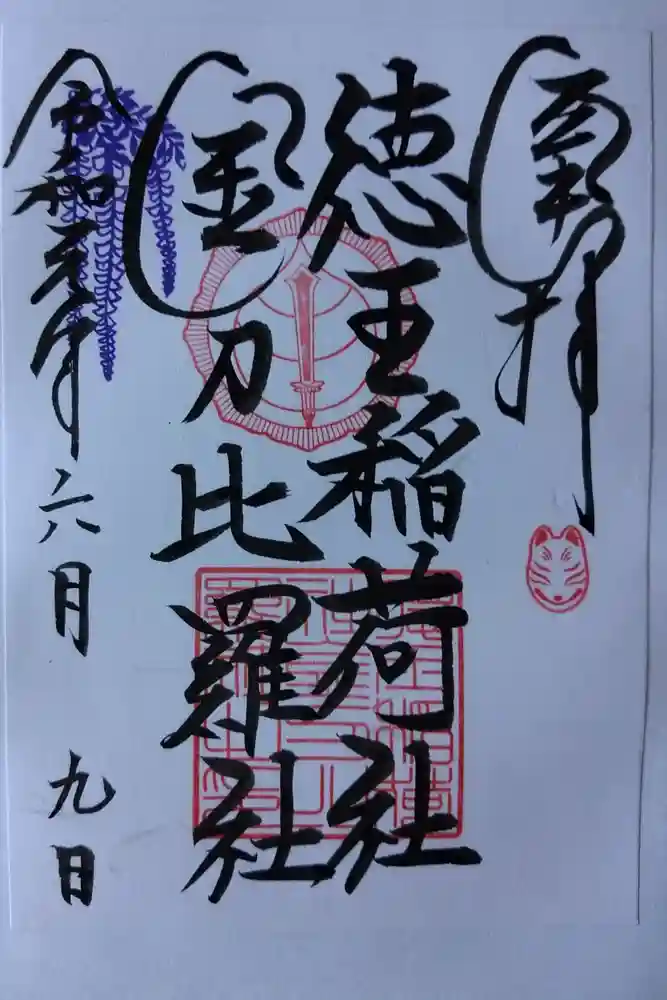 奉拝
徳王稲荷社
金刀比羅社
令和元年六月九日